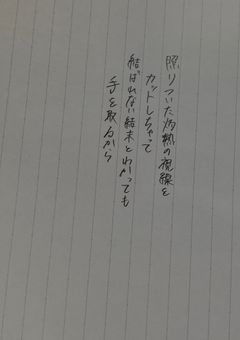 照りついた灼熱の視線を
カットしちゃって
結ばれない結末とわかっても
手を取るから